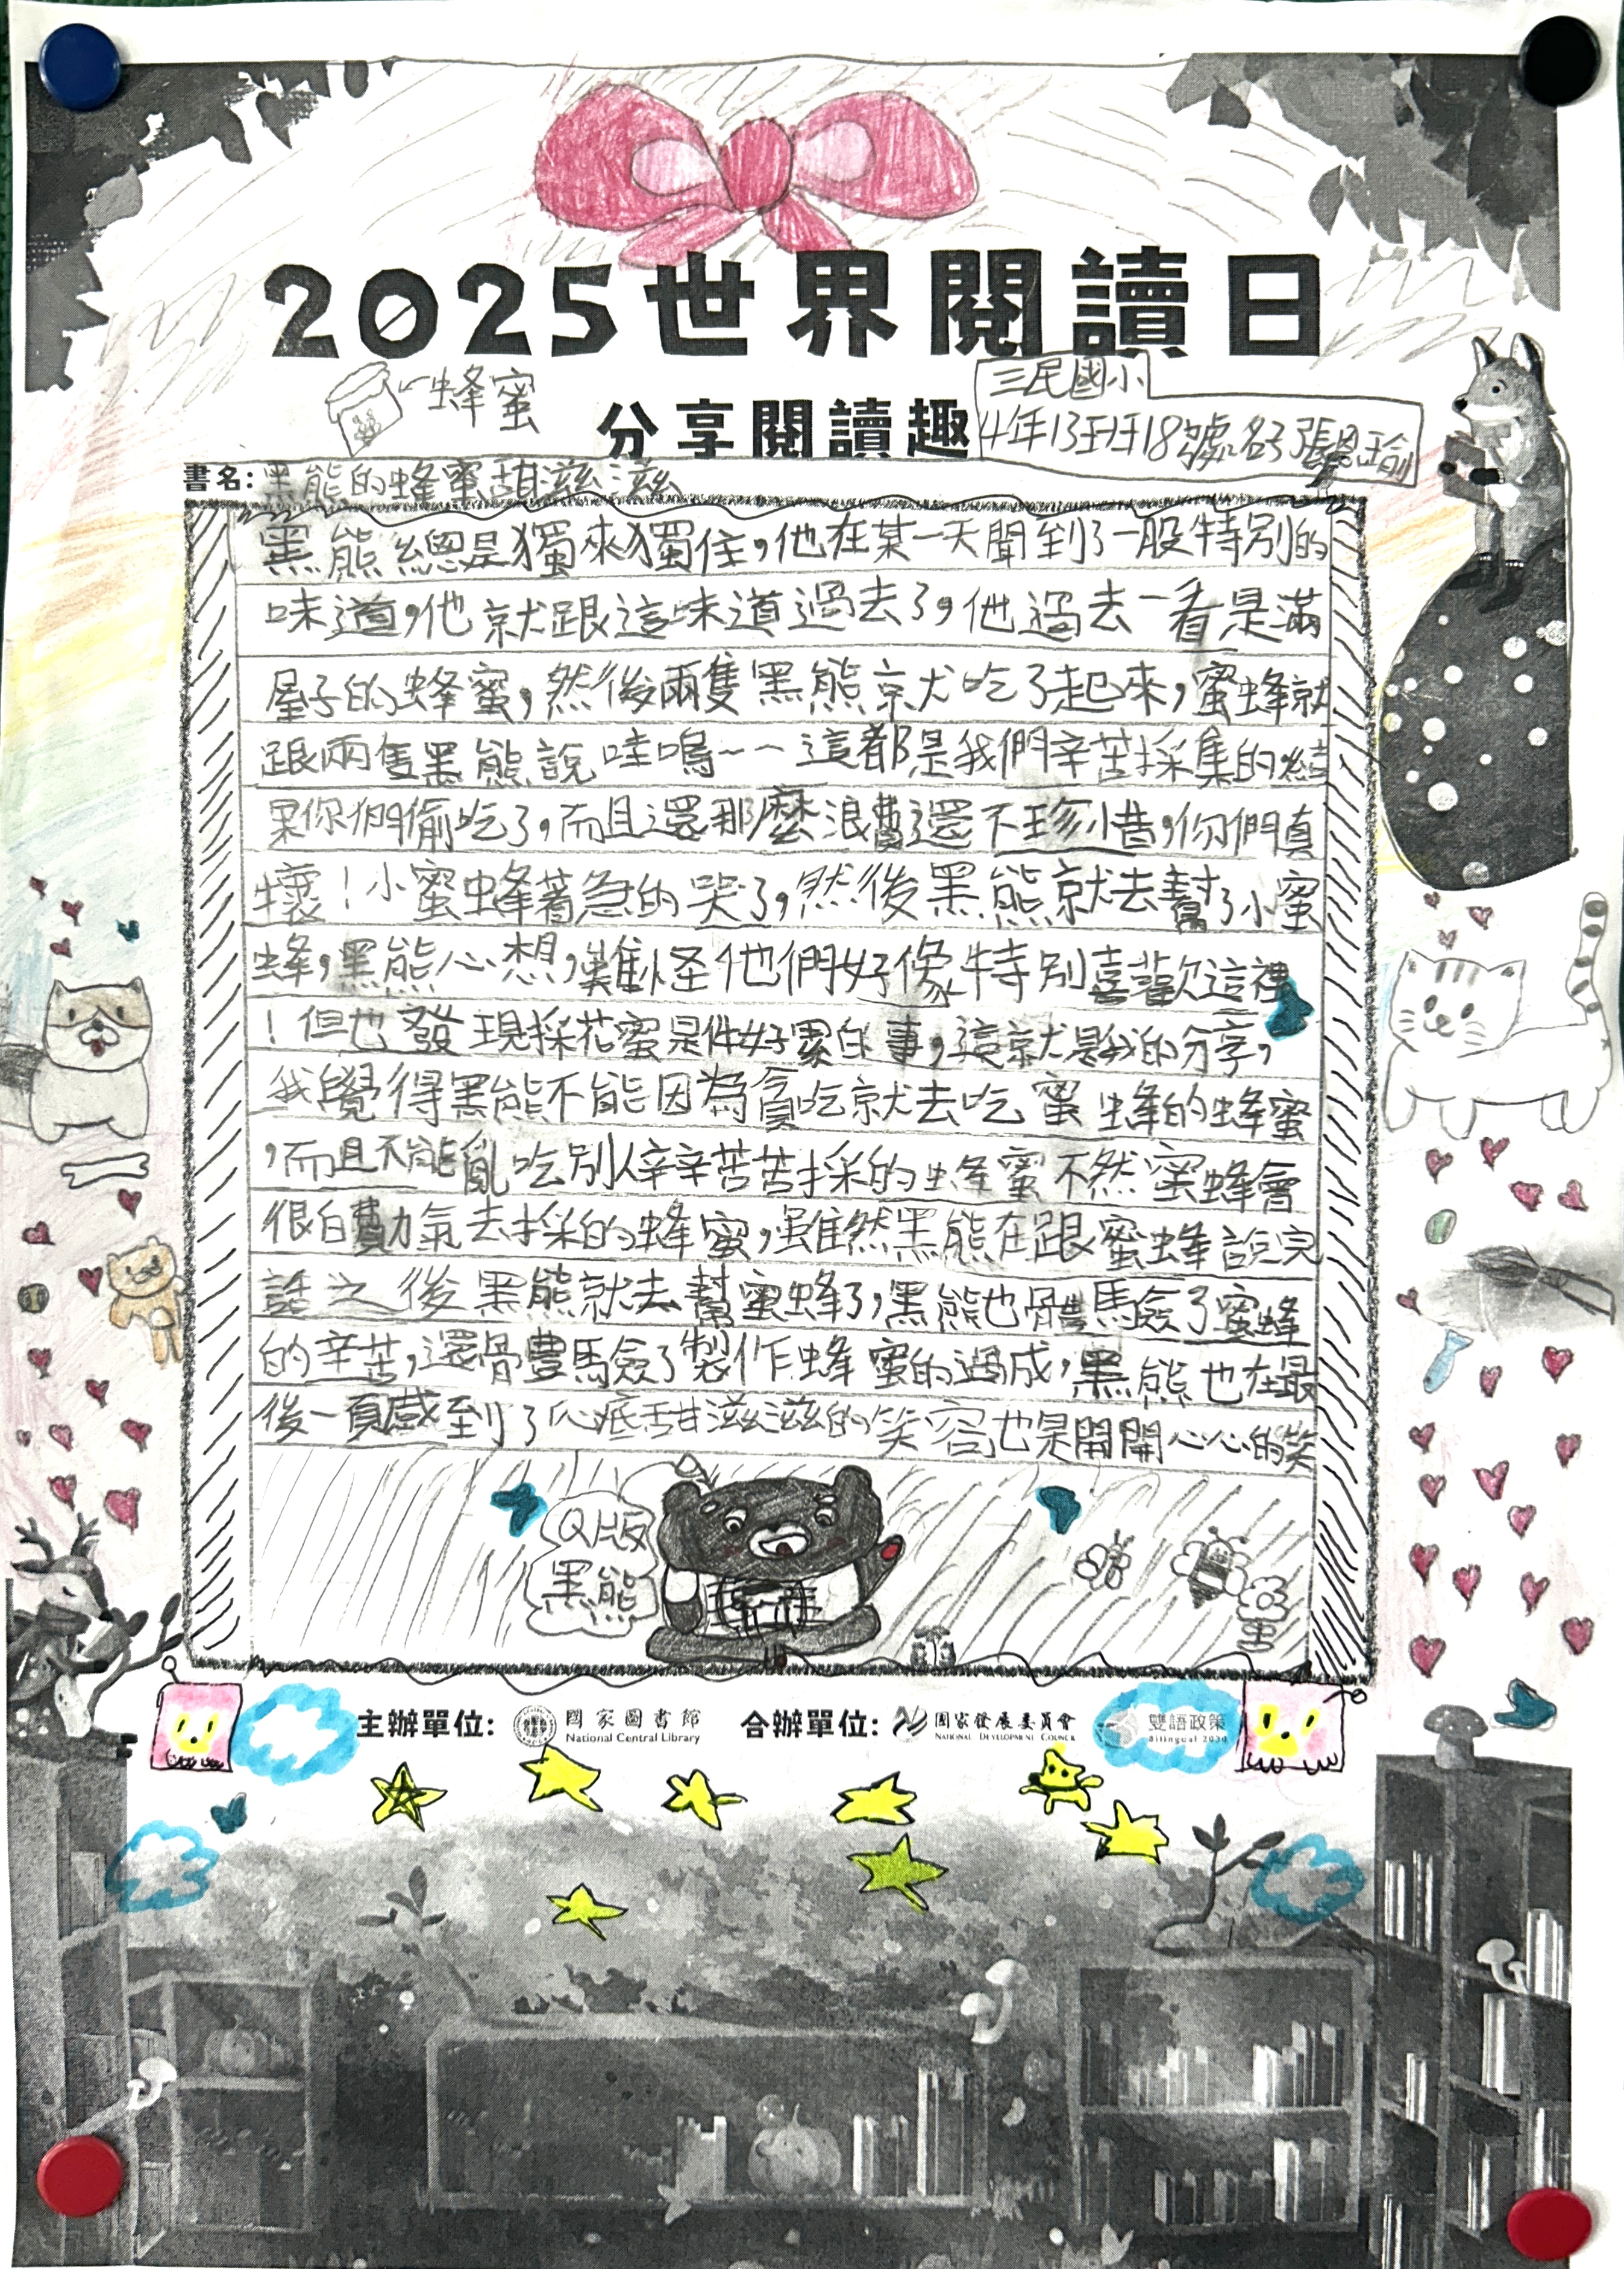 2025世界閱讀日
蜂蜜
分享閱讀趣
三民國小
4年13班18號名子張恩瑜
書名:黑熊的蜂蜜甜滋滋
黑熊總是獨來獨住,他在某一天聞到了一股特別的
味道,他就跟這味道過去了,他過去一看是滿
屋子的蜂蜜,然後兩隻黑熊就吃了起來,蜜蜂就
跟兩隻黑熊說哇嗚~~這都是我們辛苦採集的結
果你們偷吃了,而且還那麼浪費還不珍惜,你們真
壞!小蜜蜂著急的哭了,然後黑熊就去幫了小蜜
蜂,黑熊心想,難怪他們好像特別喜歡這裡
!但也發現採花蜜是件好累的事,這就是我的分享,
我覺得黑熊不能因為貪吃就去吃蜜蜂的蜂蜜
,而且不能亂吃別人辛辛苦苦採的蜂蜜不然蜜蜂會
很白費力氣去採的蜂蜜,雖然黑熊在跟蜜蜂說完
話之後黑熊就去幫蜜蜂了,黑熊也體驗了蜜蜂
的辛苦,還體驗了製作蜂蜜的過成,黑熊也在最
後一頁感到了心底甜滋滋的笑容也是開開心心的笑
Q版
黑熊
主辦單位:
國家圖書館
National Central Library
合辦單位:
國家發展委員會
National Development Council
雙語政策
Bilingual 2030